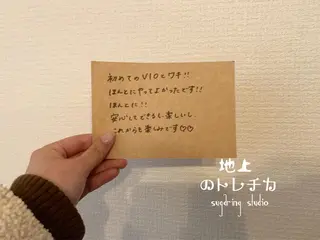 初めてのVIOとワキ!!
ほんとにやってよかったです!!
ほんとに!!
安心してできるし、楽しいし、
これからも楽しみです♡♡
地上
のトレチカ
sugaring studio